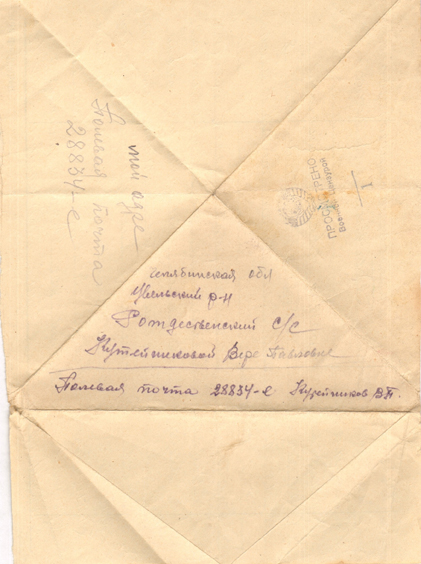 Челябинская обл
Увельский р-н
Рождественский с/с
Кутейниковой Вере Павловне
Полевая почта 28834-е Кутейников В.П.
мой адре
Полевая почта
28834-е
ПРОСМОТРЕНО
Военной Цензурой
1